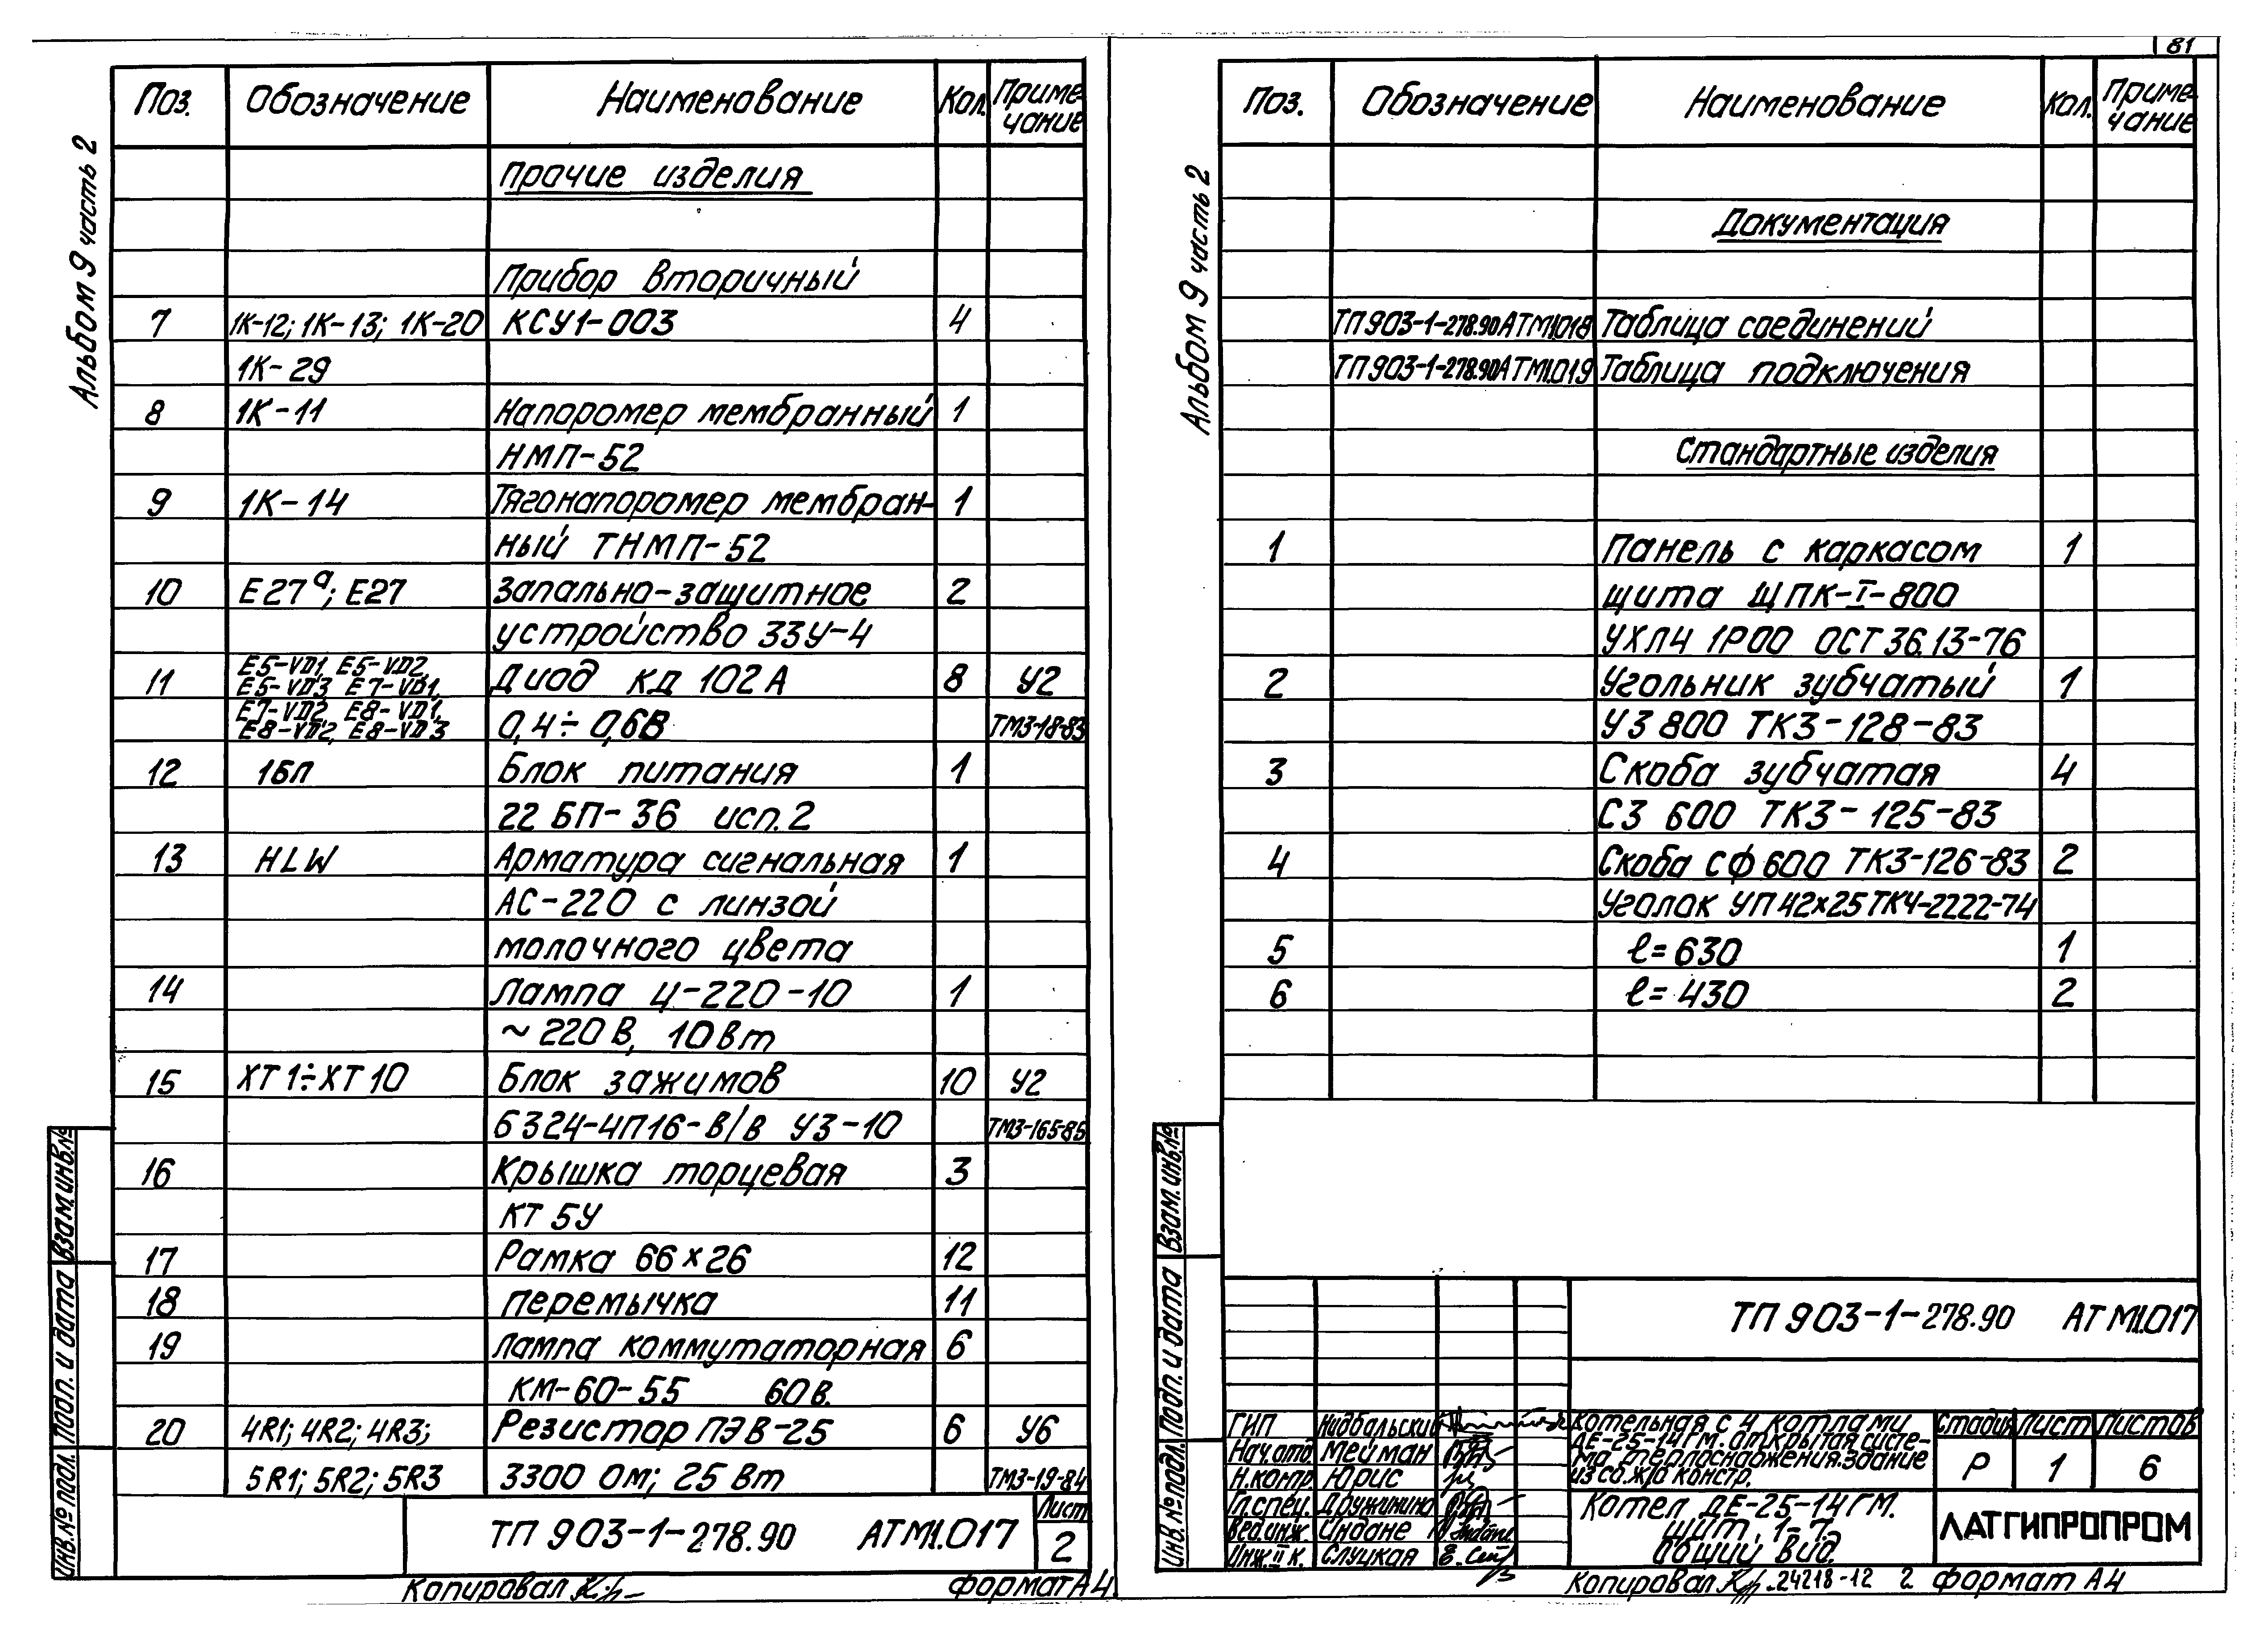 81
Альбом 9 часть 2
Поз. Обозначение Наименование Кол. Приме-
чание
Прочие изделия
Прибор вторичный
7 1К-12; 1К-13; 1К-20 КСУ1-003 4
1К-29
8 1К-11 Напоромер мембранный 1
НМП-52
9 1К-14 Тягонапоромер мембран- 1
ный ТНМП-52
10 Е27а; Е27 Запально-защитное 2
устройство ЗЗУ-4
11 Е5-VD1, Е5-VD2, Диод КД 102А 8 У2
Е5-VD3 Е7-VD1,
Е7-VD2, Е8-VD1, 0,4÷0,6В ТМ3-18-83
Е8-VD2, Е8-VD3
12 1БП Блок питания 1
22 БП-36 исп. 2
13 HLW Арматура сигнальная 1
АС-220 с линзой
молочного цвета
14 Лампа Ц-220-10 1
~220В, 10Вт
15 ХТ1÷ХТ10 Блок зажимов 10 У2
БЗ24-4П16-В/В У3-10 ТМ3-165-85
16 Крышка торцевая 3
КТ 5У
17 Рамка 66х26 12
18 перемычка 11
19 лампа коммутаторная 6
КМ-60-55 60В.
20 4R1; 4R2; 4R3; Резистор ПЭВ-25 6 У6
5R1; 5R2; 5R3 3300 Ом; 25 Вт ТМ3-19-84
ТП 903-1-278.90 АТМ1.017 Лист
2
Взам. инв. №
Подп. и дата
Инв. № подл.
Копировал
Формат А4
Альбом 9 часть 2
Поз. Обозначение Наименование Кол. Приме-
чание
Документация
ТП903-1-278.90 АТМ1.018 Таблица соединений
ТП903-1-278.90 АТМ1.019 Таблица подключения
Стандартные изделия
1 Панель с каркасом 1
щита ЩПК-I-800
УХЛ4 1Р00 ОСТ 36.13-76
2 Угольник зубчатый 1
УЗ 800 ТК3-128-83
3 Скоба зубчатая 4
СЗ 600 ТК3-125-83
4 Скоба СФ600 ТК3-126-83 2
Уголок УП42х25 ТК4-2222-74
5 ℓ=630 1
6 ℓ=430 2
ТП 903-1-278.90 АТМ1.017
ГИП Нидбальский
Нач.отд. Мейман
Н.контр. Юрис
Гл.спец. Дружинина
Вед.инж. Индане
Инж. II к. Слуцкая
Котельная с 4 котлами
ДЕ-25-14ГМ. открытая систе-
ма теплоснабжения. Здание
из сб. ж/б констр.
Стадия Лист Листов
Р 1 6
Котел ДЕ-25-14ГМ.
щит 1-7.
Общий вид.
ЛАТГИПРОПРОМ
Взам. инв. №
Подп. и дата
Инв. № подл.
Копировал 24218-12 2 Формат А4